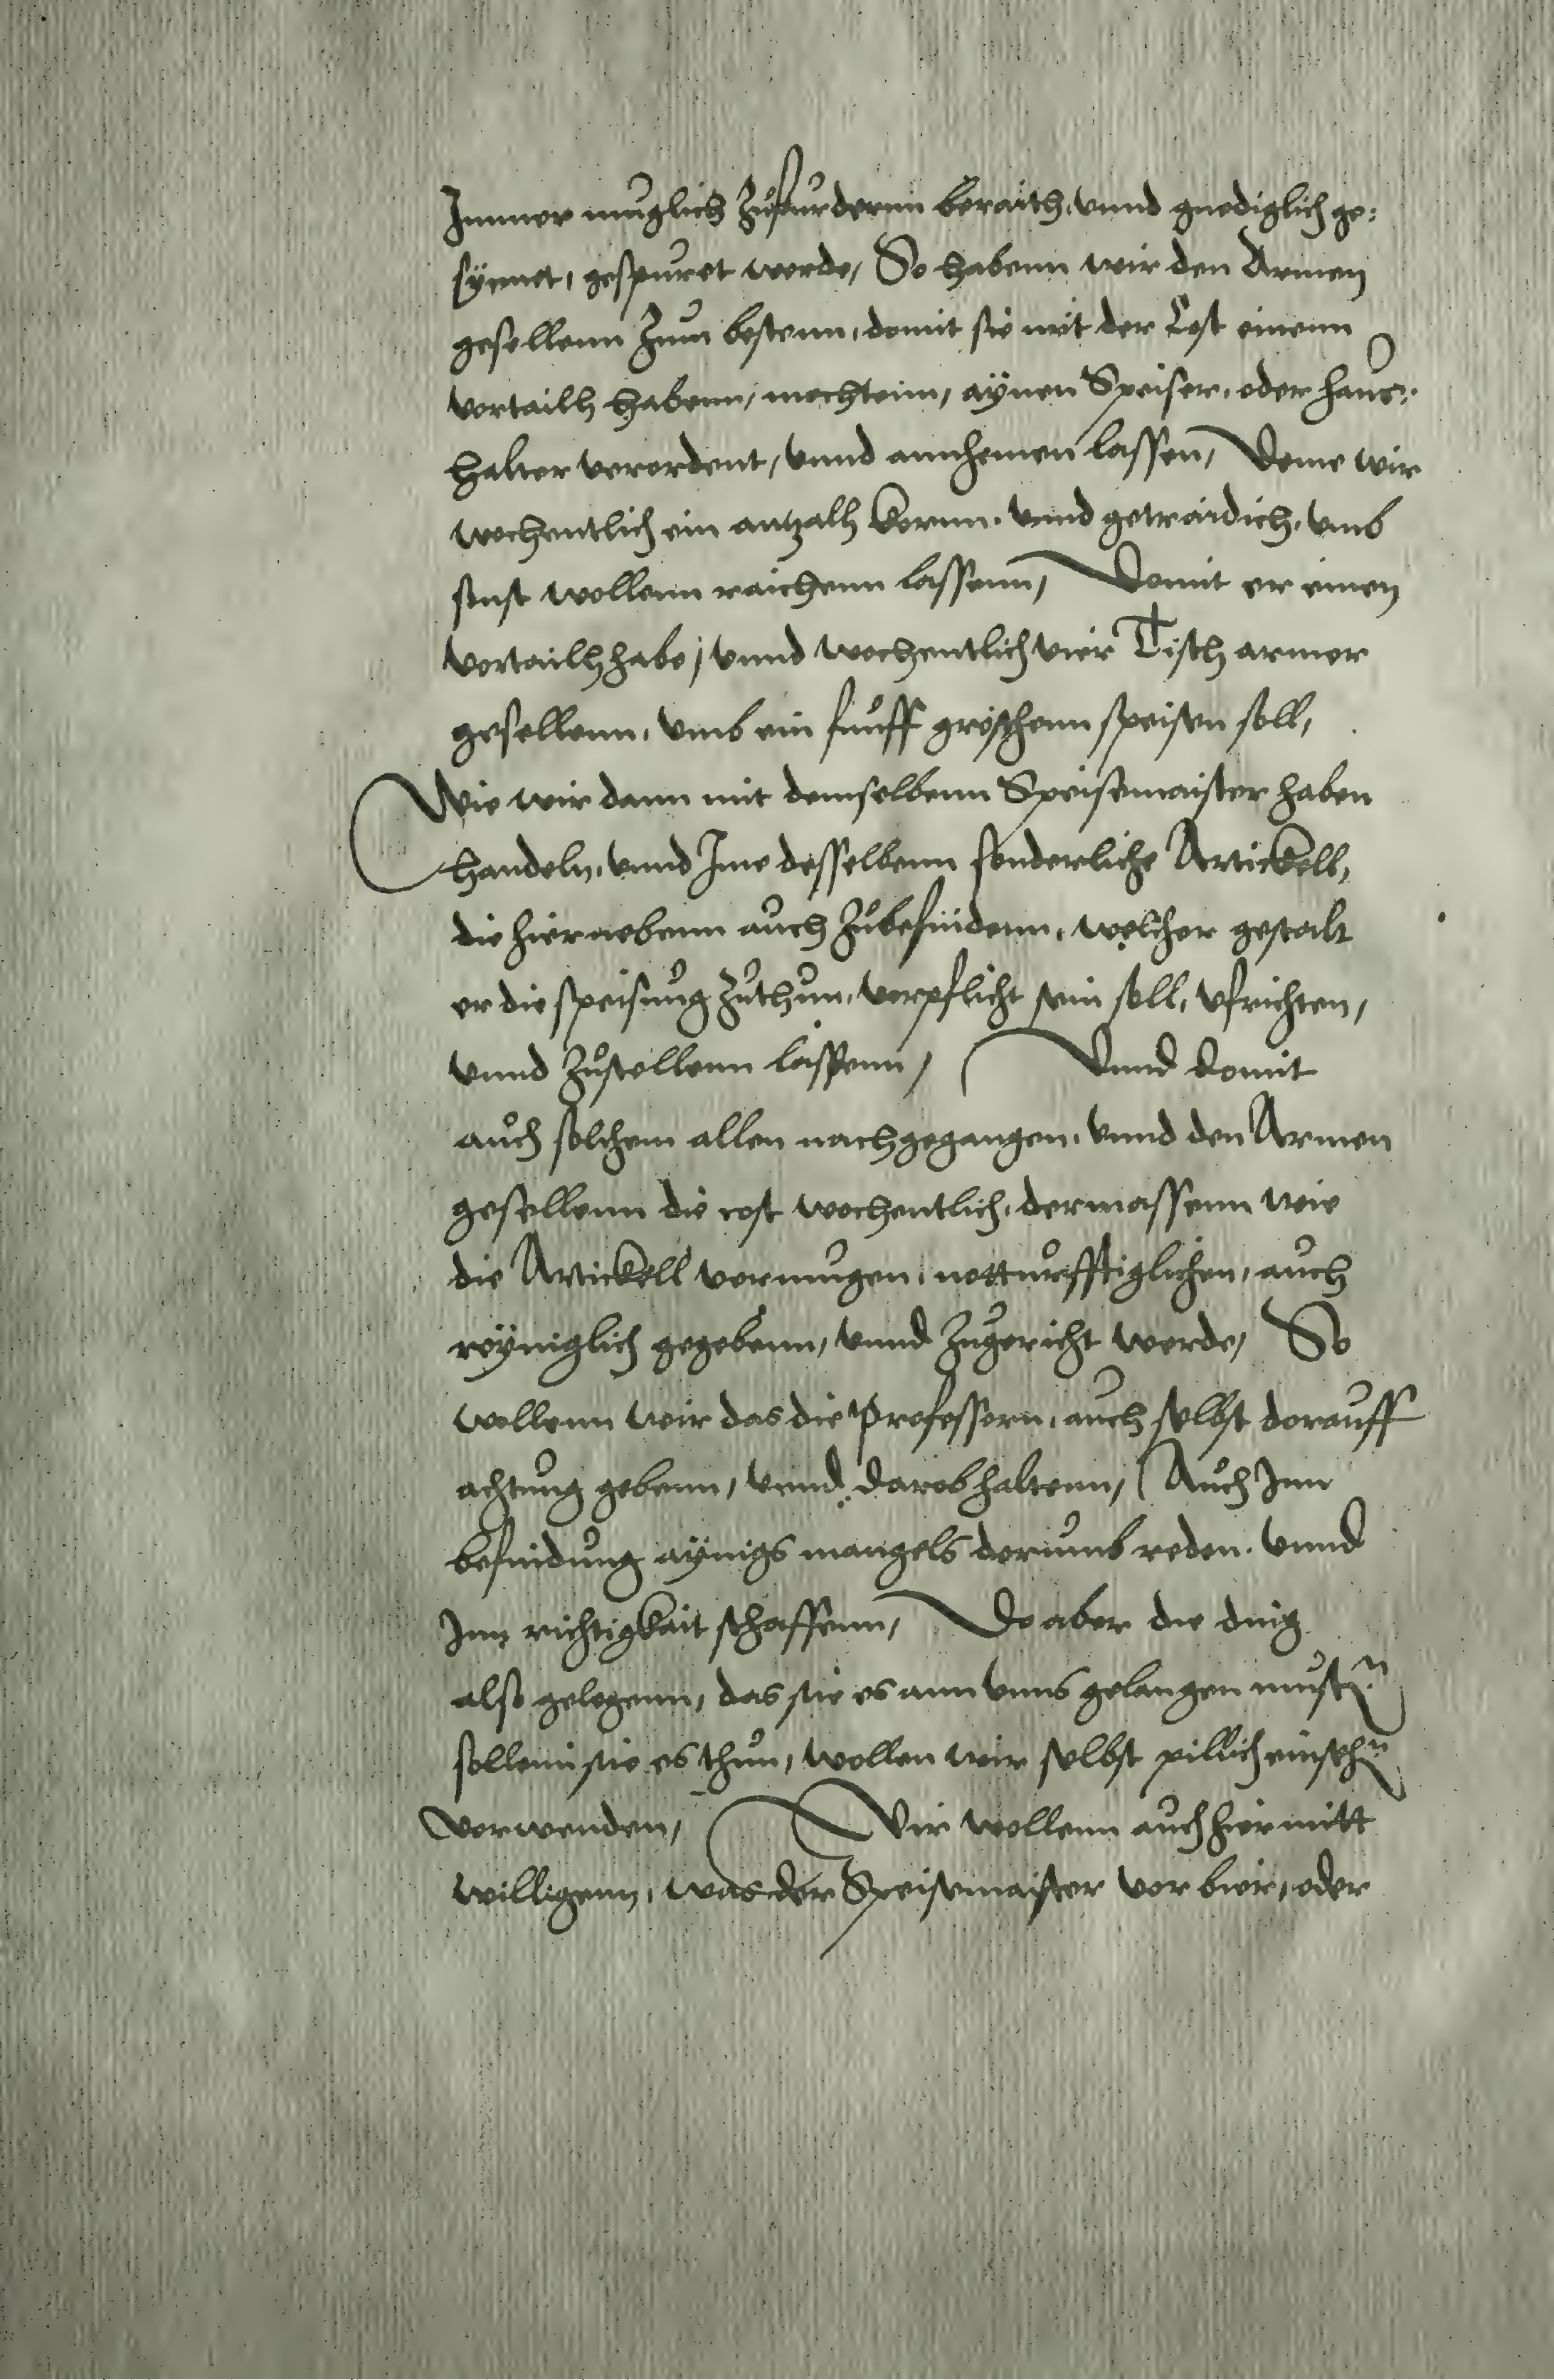 Immer muglich zufurdernn beraith, vnnd gnediglich ge:
synnet, gespuret werde, So habenn wir den Armen
gesellenn zum bestenn, domit sie mit der Cost einenn
vortailh habenn, mochtenn, aynen Speiser, oder haus:
halter verordent, vnnd annhemen lassen, Deme wir
wochentlich ein antzalh kornn, vnnd getraidich, vmb
sust wollenn raichenn lassenn, Domit er einen
vortailh habe, vnnd wochentlich vier Tisch armer
gesellenn, vmb ein funff groschenn speisen soll,
Wie wir dann mit demselbenn Speisemaister haben
handeln, vnnd Ime desselbenn sonderliche Artickell,
die hiernebenn auch zubefindenn, welcher gestalt
er die speisung zuthun, verpflicht sein soll, vfrichten,
vnnd zustellenn lassenn, Vnnd domit
auch solchem allen nachgegangen, vnnd den Armen
gesellenn die cost wochentlich, dermassenn wie
die Artickell vermugen, notturfftiglichen, auch
reyniglich gegebenn, vnnd zugericht werde, So
wollenn wir das die Professorn, auch selbst dorauff
achtung gebenn, vnnd darob haltenn, Auch Inn
befindung aynigs mangels dorumb reden, vnnd
Inn richtigkait schaffenn, Do aber die ding
also gelegenn, das sie es ann vnns gelangen mustn
sollenn sie es thun, wollen wir selbst pillich einsehn
vorwenden, Wir wollenn auch hiermitt
willigenn, was der Speisemaister vor bier, oder